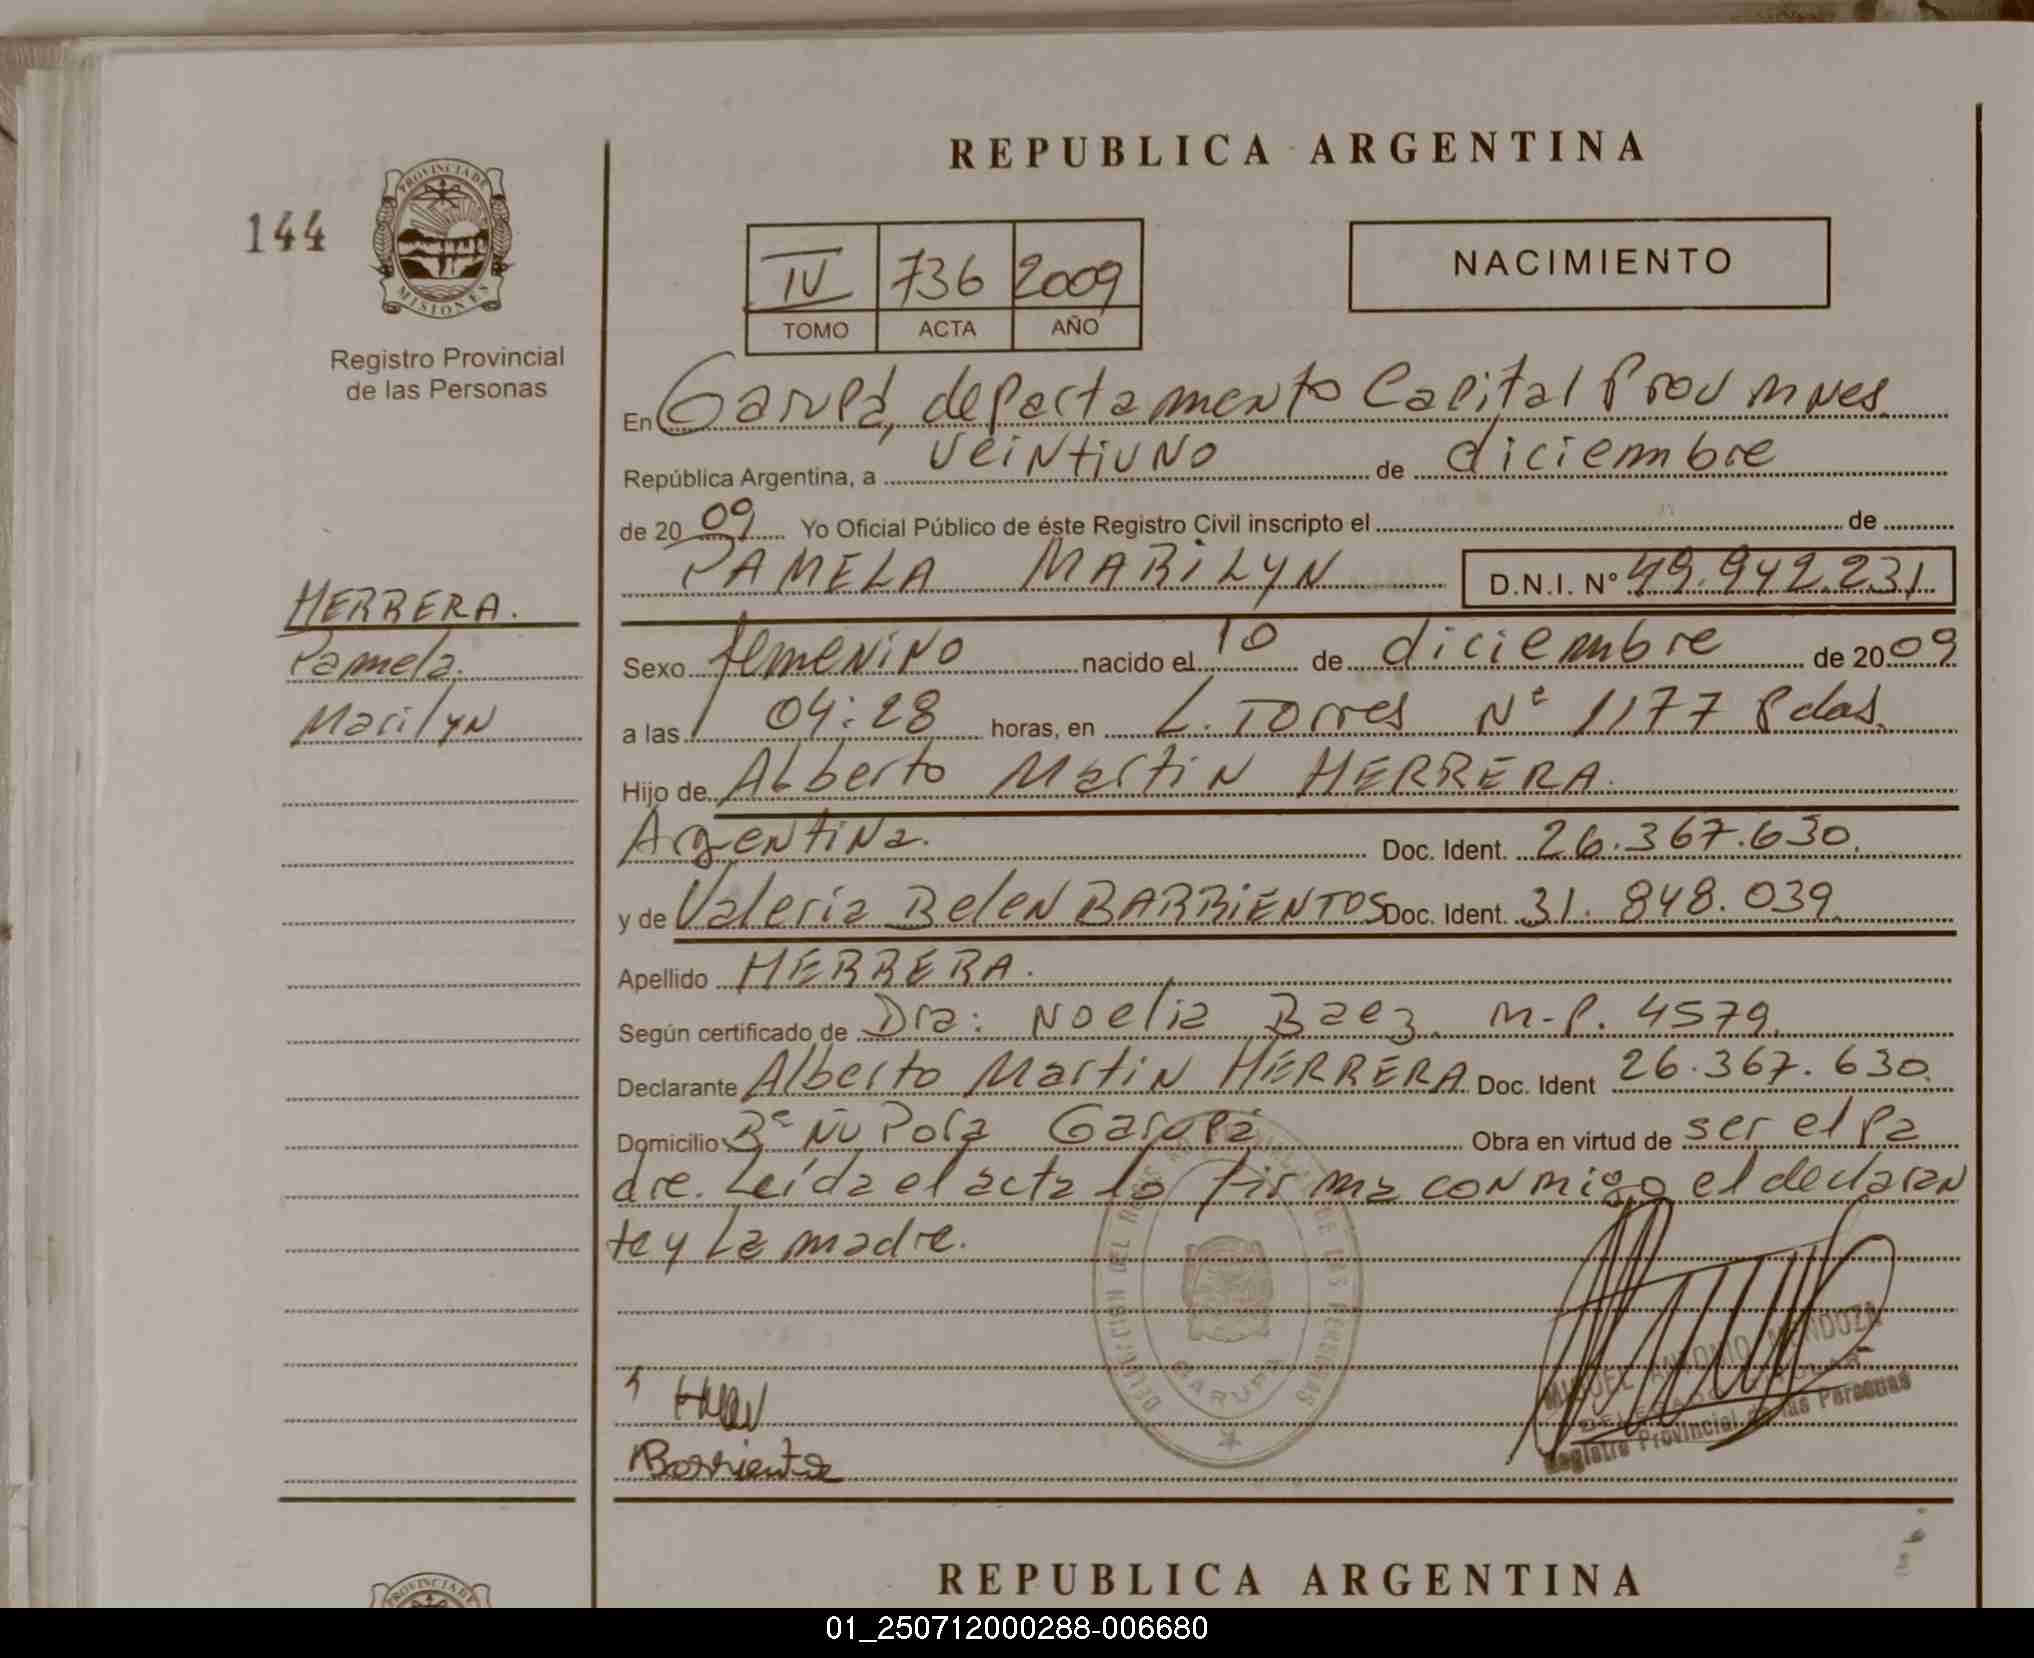 REPUBLICA ARGENTINA
144
PROVINCIA DE
MISIONES
Registro Provincial
de las Personas
IV 736 2009
TOMO ACTA AÑO
NACIMIENTO
En Garupá, departamento Capital Prov Mnes
República Argentina, a veintiuno de diciembre
de 2009 Yo Oficial Público de éste Registro Civil inscripto el de
PAMELA MARILYN D.N.I. Nº 49.942.231
HERRERA.
Pamela
Marilyn
Sexo femenino nacido el 10 de diciembre de 2009
a las 04:28 horas, en L. Torres Nº 1177 Pdas.
Hijo de Alberto Martin HERRERA.
Argentina. Doc. Ident. 26.367.630.
y de Valeria Belen BARRIENTOS Doc. Ident. 31.848.039
Apellido HERRERA.
Según certificado de Dra: Noelia Baez. M.P. 4579
Declarante Alberto Martin HERRERA Doc. Ident 26.367.630
Domicilio Bº Ñu Pora Garupá Obra en virtud de ser el pa
dre. Leída el acta la firma conmigo el declaran
te y La madre.
GARUPA
MIGUEL ANTONIO MENDOZA
Registro Provincial de las Personas
REPUBLICA ARGENTINA
PROVINCIA DE
01_250712000288-006680